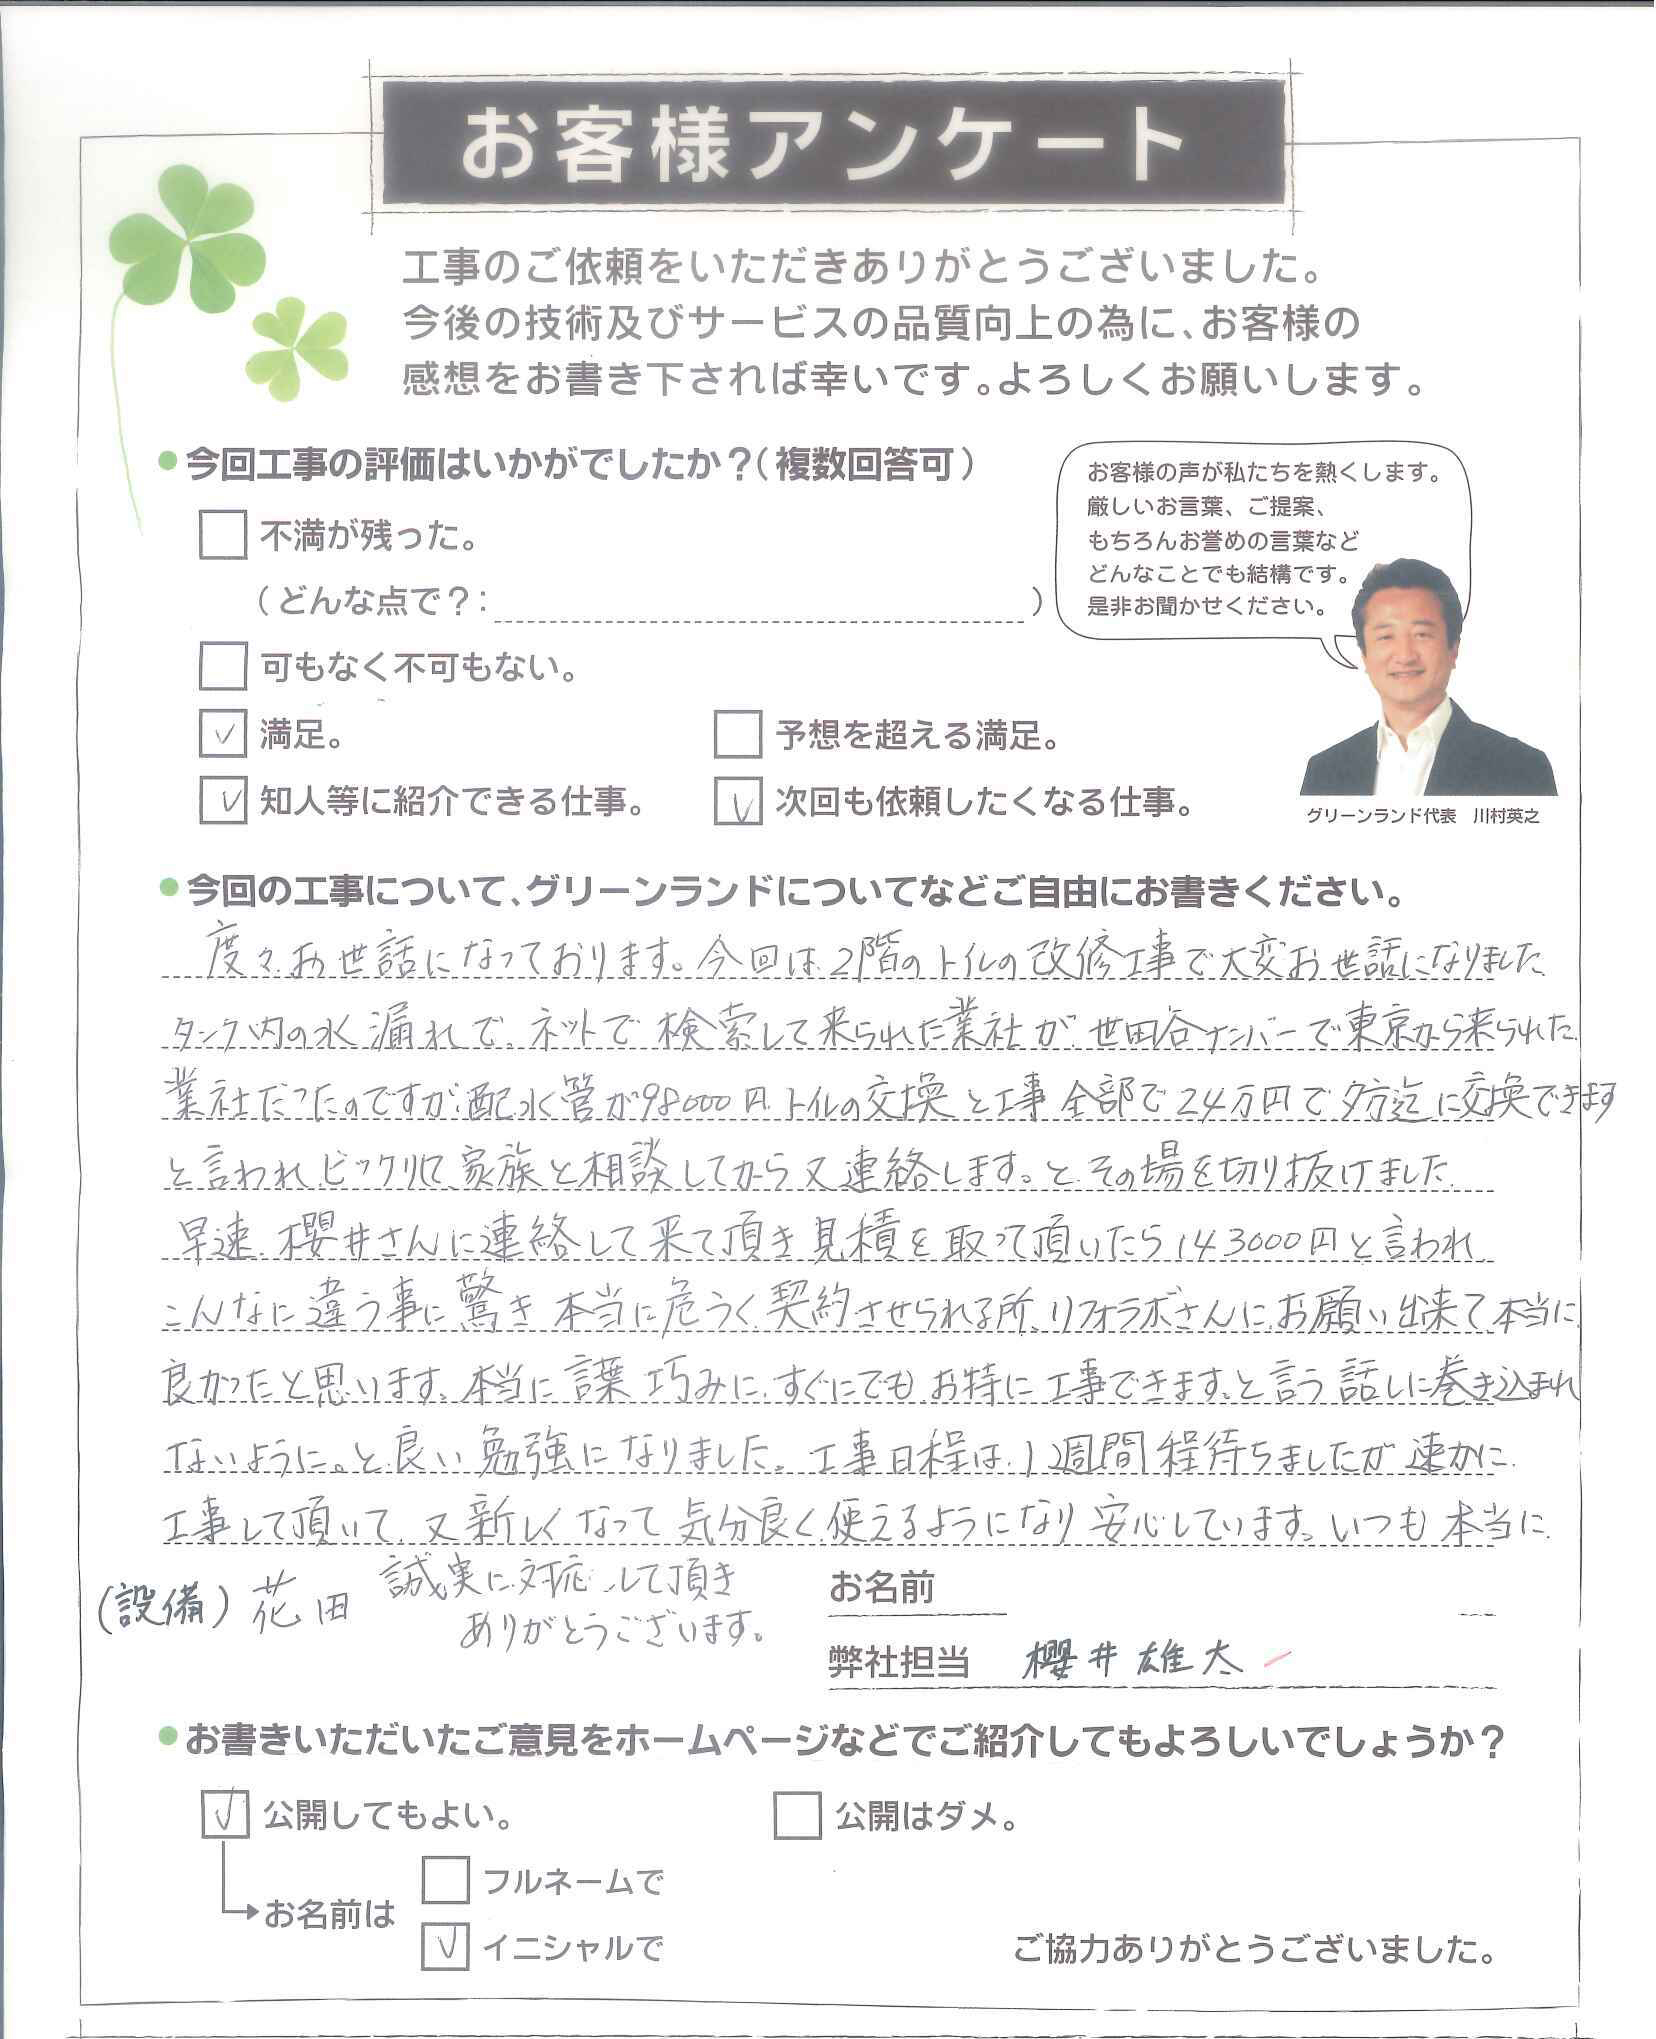 お客様アンケート
工事のご依頼をいただきありがとうございました。
今後の技術及びサービスの品質向上の為に、お客様の
感想をお書き下されば幸いです。よろしくお願いします。
今回工事の評価はいかがでしたか？（複数回答可）
不満が残った。
（どんな点で？： ）
可もなく不可もない。
満足。
予想を超える満足。
知人等に紹介できる仕事。
次回も依頼したくなる仕事。
お客様の声が私たちを熱くします。
厳しいお言葉、ご提案、
もちろんお誉めの言葉など
どんなことでも結構です。
是非お聞かせください。
グリーンランド代表　川村英之
今回の工事について、グリーンランドについてなどご自由にお書きください。
度々お世話になっております。今回は2階のトイレの改修工事で大変お世話になりました
タンク内の水漏れで、ネットで検索して来られた業社が世田谷ナンバーで東京から来られた
業社だったのですが配水管が98000円トイレの交換と工事全部で24万円で夕方迄に交換できます
と言われビックリして家族と相談してから又連絡します。とその場を切り抜けました
早速、櫻井さんに連絡して来て頂き見積を取って頂いたら143000円と言われ
こんなに違う事に驚き本当に危うく契約させられる所、リフォラボさんにお願い出来て本当に
良かったと思います。本当に言葉巧みに、すぐにでもお特に工事できます。と言う話しに巻き込まれ
ないように。と良い勉強になりました。工事日程は、1週間程待ちましたが速かに
工事して頂いて、又新しくなって気分良く使えるようになり安心しています。いつも本当に
誠実に対応して頂き
ありがとうございます。
（設備）花田
お名前
弊社担当　櫻井雄太
お書きいただいたご意見をホームページなどでご紹介してもよろしいでしょうか？
公開してもよい。
公開はダメ。
お名前は
フルネームで
イニシャルで
ご協力ありがとうございました。